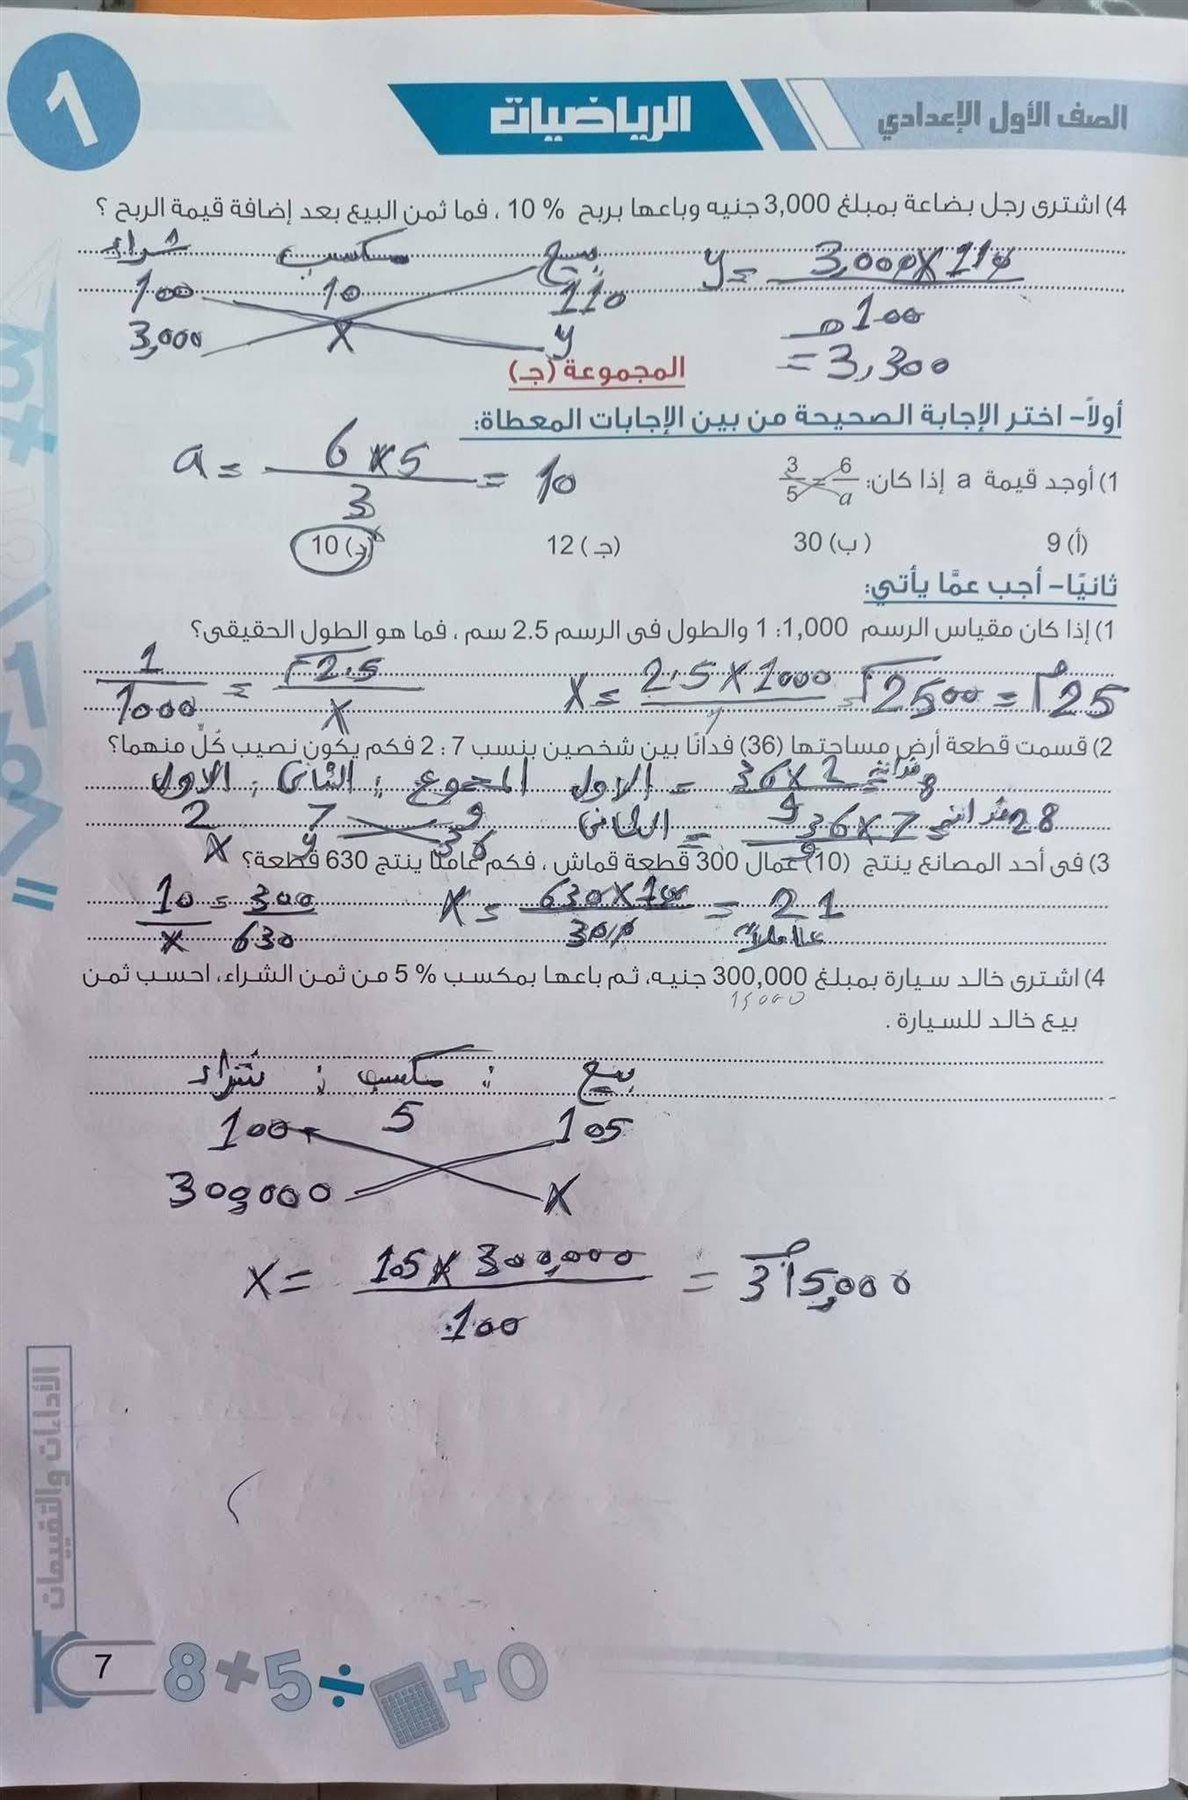 1
الرياضيات
الصف الأول الإعدادي
4) اشترى رجل بضاعة بمبلغ 3,000 جنيه وباعها بربح 10 % ، فما ثمن البيع بعد إضافة قيمة الربح ؟
شراء مكسب بيع
100 10 110
3,000 x y
y = 3,000 x 110
100
= 3,300
المجموعة (جـ)
أولاً- اختر الإجابة الصحيحة من بين الإجابات المعطاة:
1) أوجد قيمة a إذا كان: 3/5 = 6/a
a = 6 x 5 / 3 = 10
(أ) 9 (ب) 30 (جـ) 12 (د) 10
ثانيًا- أجب عمَّا يأتي:
1) إذا كان مقياس الرسم 1,000 : 1 والطول فى الرسم 2.5 سم ، فما هو الطول الحقيقى؟
1/1000 = 2.5/x x = 2.5 x 1000 / 1 = 2500 = 25 م
2) قسمت قطعة أرض مساحتها (36) فدانًا بين شخصين بنسب 7 : 2 فكم يكون نصيب كُلٍّ منهما؟
الاول : الثانى : المجموع الاول = 36 x 2 / 9 = 8
2 7 9 الثانى = 36 x 7 / 9 = 28
x y 36
3) فى أحد المصانع ينتج (10) عمال 300 قطعة قماش ، فكم عاملًا ينتج 630 قطعة؟
10/x = 300/630 x = 630 x 10 / 300 = 21
عاملاً
4) اشترى خالد سيارة بمبلغ 300,000 جنيه، ثم باعها بمكسب 5 % من ثمن الشراء، احسب ثمن
15000
بيع خالد للسيارة .
شراء : مكسب : بيع
100 5 105
300,000 x
x = 105 x 300,000 / 100 = 315,000
الأداءات والتقييمات
7
8+5÷ +0